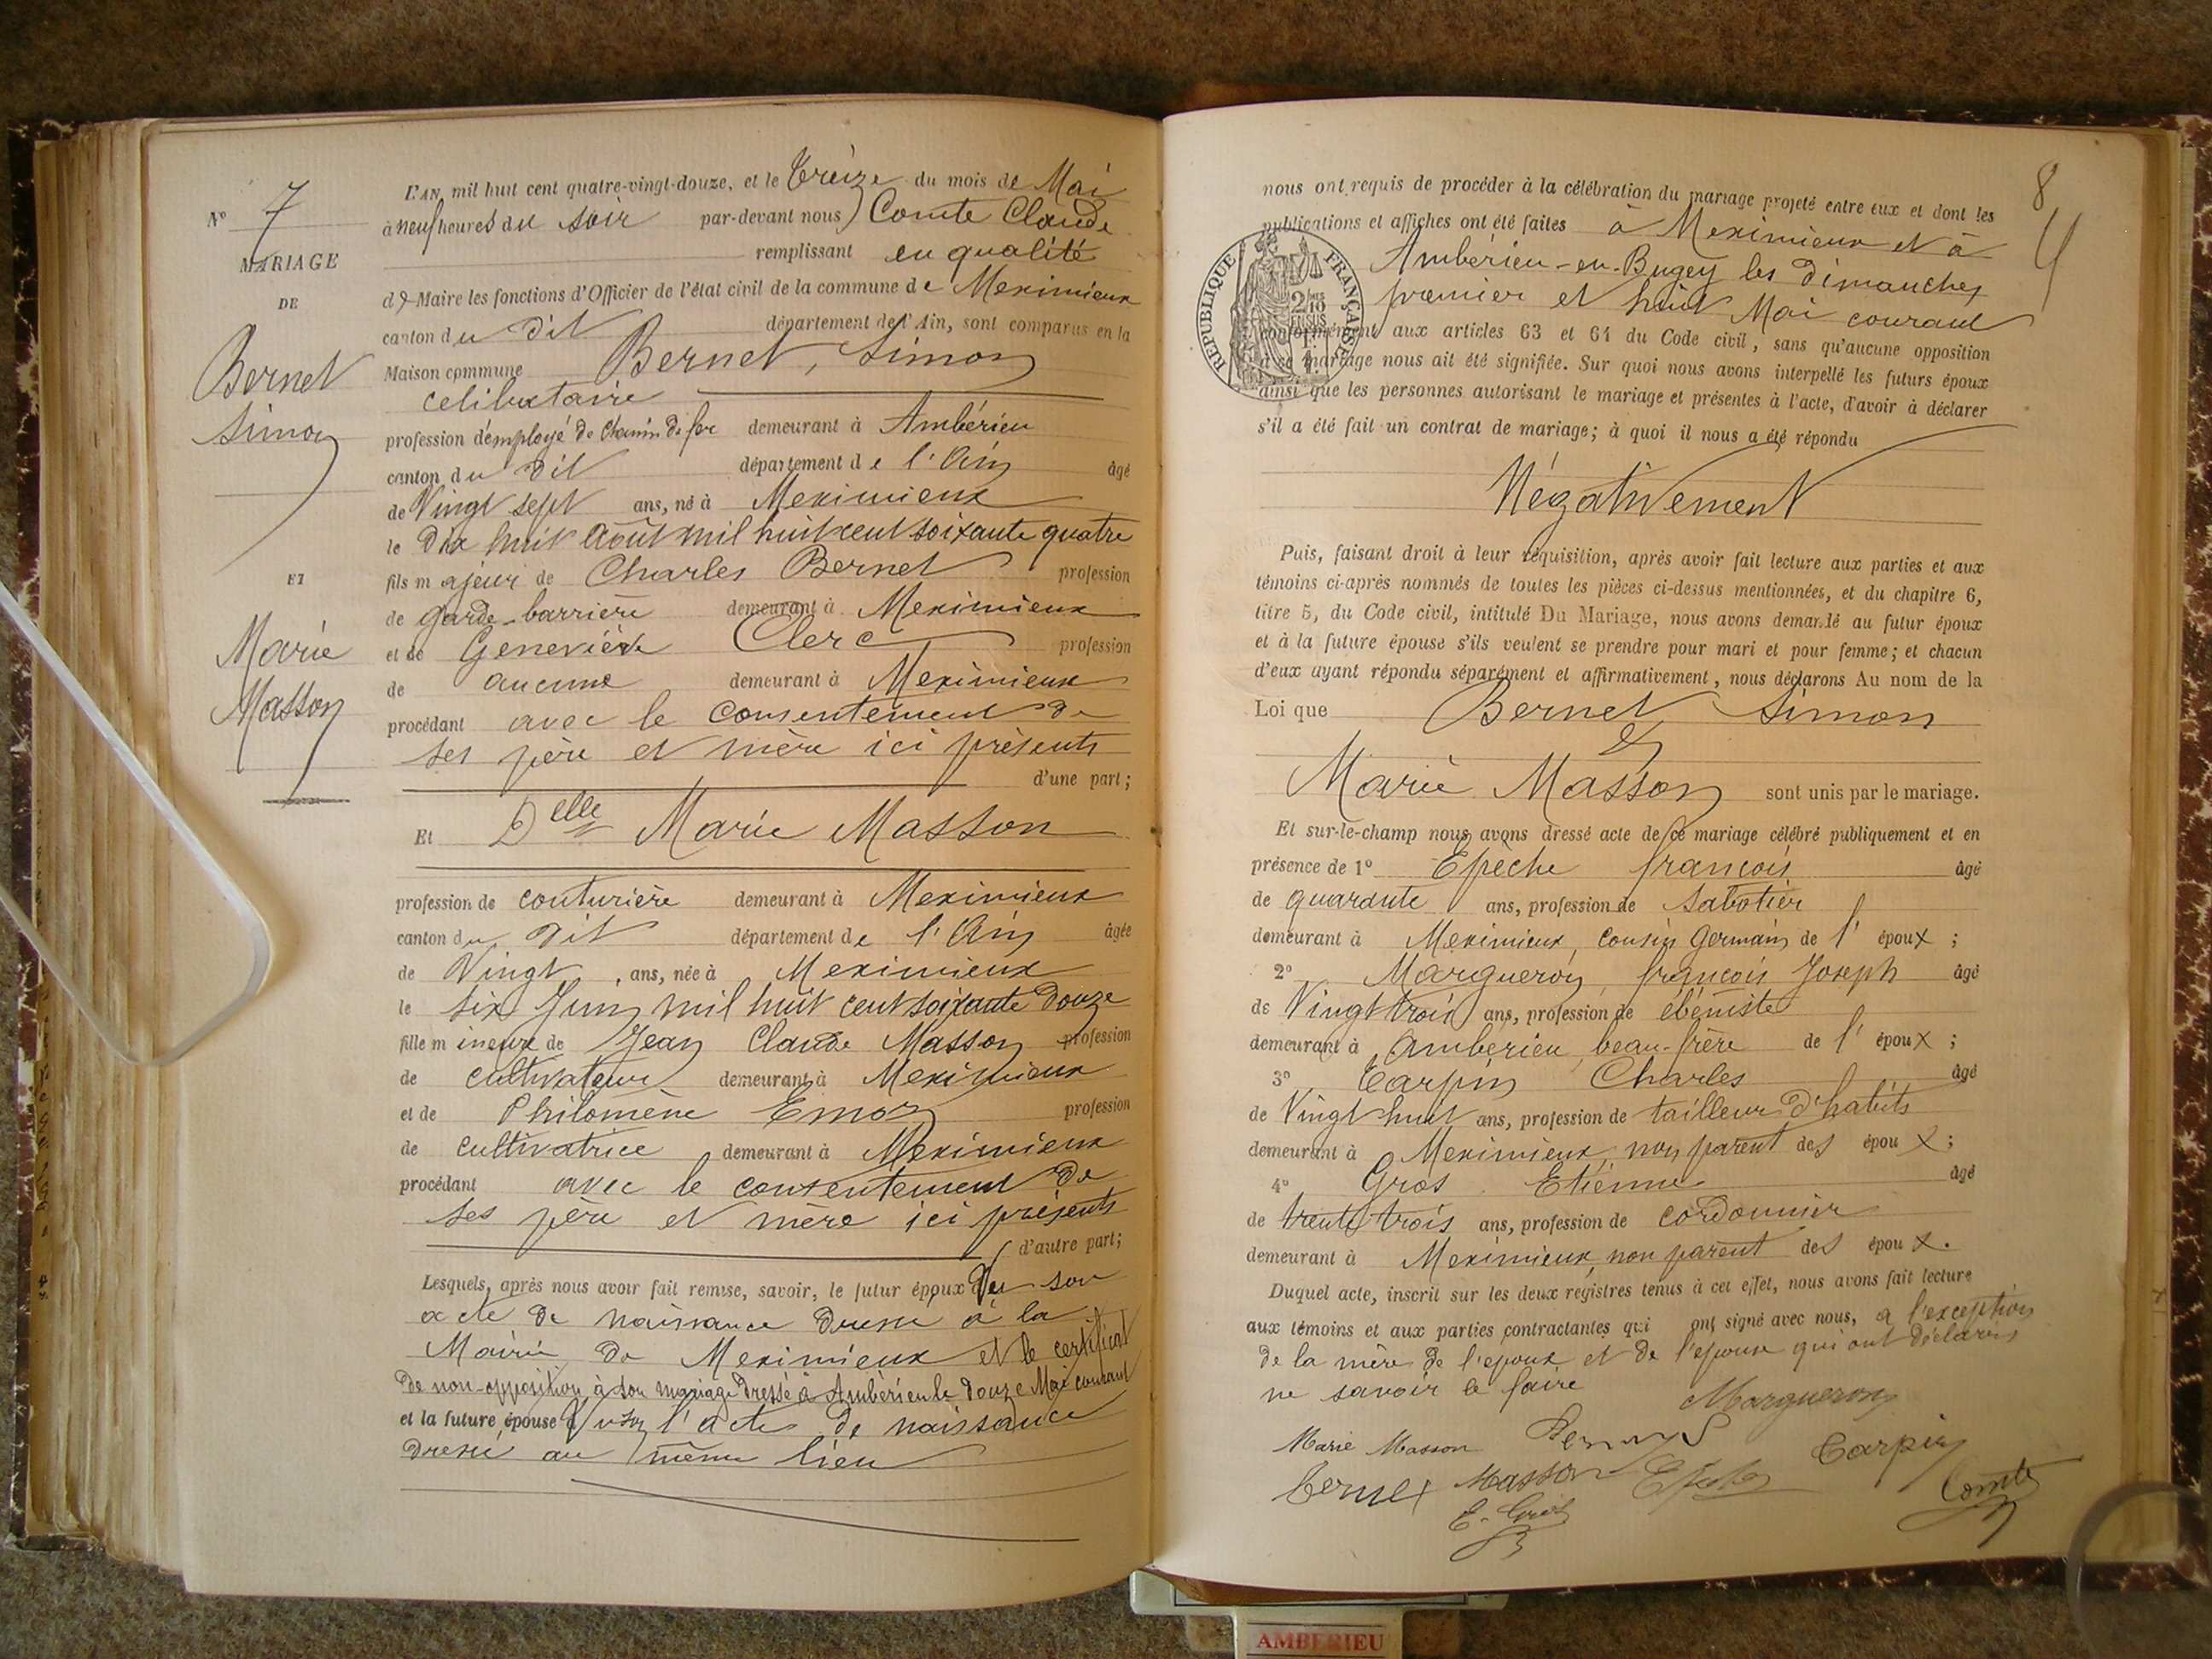 N° 7
MARIAGE
DE
Bernet
Simon
ET
Marie
Masson
L'AN mil huit cent quatre-vingt-douze, et le Treize du mois de Mai
à neuf heures du soir par-devant nous Comte Claude
remplissant en qualité
de Maire les fonctions d'Officier de l'état civil de la commune de Meximieux
canton du dit département de l'Ain, sont comparus en la
Maison commune Bernet, Simon
celibataire
profession d'employé de Chemin de fer demeurant à Ambérieu
canton du dit département de l'Ain âgé
de Vingt sept ans, né à Meximieux
le dix huit Août mil huit cent soixante quatre
fils majeur de Charles Bernet profession
de garde-barrière demeurant à Meximieux
et de Geneviève Clerc profession
de aucune demeurant à Meximieux
procédant avec le consentement de
ses père et mère ici présents
d'une part;
Et Delle Marie Masson
profession de couturière demeurant à Meximieux
canton du dit département de l'Ain âgée
de Vingt ans, née à Meximieux
le six Juin mil huit cent soixante douze
fille mineure de Jean Claude Masson profession
de cultivateur demeurant à Meximieux
et de Philomène Emoz profession
de cultivatrice demeurant à Meximieux
procédant avec le consentement de
ses père et mère ici présents
d'autre part;
Lesquels, après nous avoir fait remise, savoir, le futur époux De son
acte de naissance dressé à la
Mairie de Meximieux et le certificat
de non-opposition à son mariage dressé à Ambérieu le douze Mai courant
et la future épouse l'acte de naissance
dressé au même lieu
8
nous ont requis de procéder à la célébration du mariage projeté entre eux et dont les
publications et affiches ont été faites à Meximieux et à
Ambérieu-en-Bugey les dimanches
premier et huit Mai courant
RÉPUBLIQUE FRANÇAISE
2/10 EN SUS
conformément aux articles 63 et 64 du Code civil, sans qu'aucune opposition
à ce mariage nous ait été signifiée. Sur quoi nous avons interpellé les futurs époux
ainsi que les personnes autorisant le mariage et présentes à l'acte, d'avoir à déclarer
s'il a été fait un contrat de mariage; à quoi il nous a été répondu
Négativement
Puis, faisant droit à leur réquisition, après avoir fait lecture aux parties et aux
témoins ci-après nommés de toutes les pièces ci-dessus mentionnées, et du chapitre 6,
titre 5, du Code civil, intitulé Du Mariage, nous avons demandé au futur époux
et à la future épouse s'ils veulent se prendre pour mari et pour femme; et chacun
d'eux ayant répondu séparément et affirmativement, nous déclarons Au nom de la
Loi que Bernet Simon
et
Marie Masson sont unis par le mariage.
Et sur-le-champ nous avons dressé acte de ce mariage célébré publiquement et en
présence de 1° Epèche françois âgé
de quarante ans, profession de Sabotier
demeurant à Meximieux, cousin germain de l'époux;
2° Margueron, françois Joseph âgé
de Vingt trois ans, profession de ébéniste
demeurant à Ambérieu, beau-frère de l'époux;
3° Carpin Charles âgé
de Vingt huit ans, profession de tailleur d'habits
demeurant à Meximieux, non parent des époux;
4° Gros Etienne âgé
de trente trois ans, profession de cordonnier
demeurant à Meximieux, non parent des époux.
Duquel acte, inscrit sur les deux registres tenus à cet effet, nous avons fait lecture
aux témoins et aux parties contractantes qui ont signé avec nous, à l'exception
de la mère de l'époux et de l'épouse qui ont déclarés
ne savoir le faire
Margueron
Marie Masson
Carpin
Bernet Masson
Comte
E. Gros
AMBERIEU